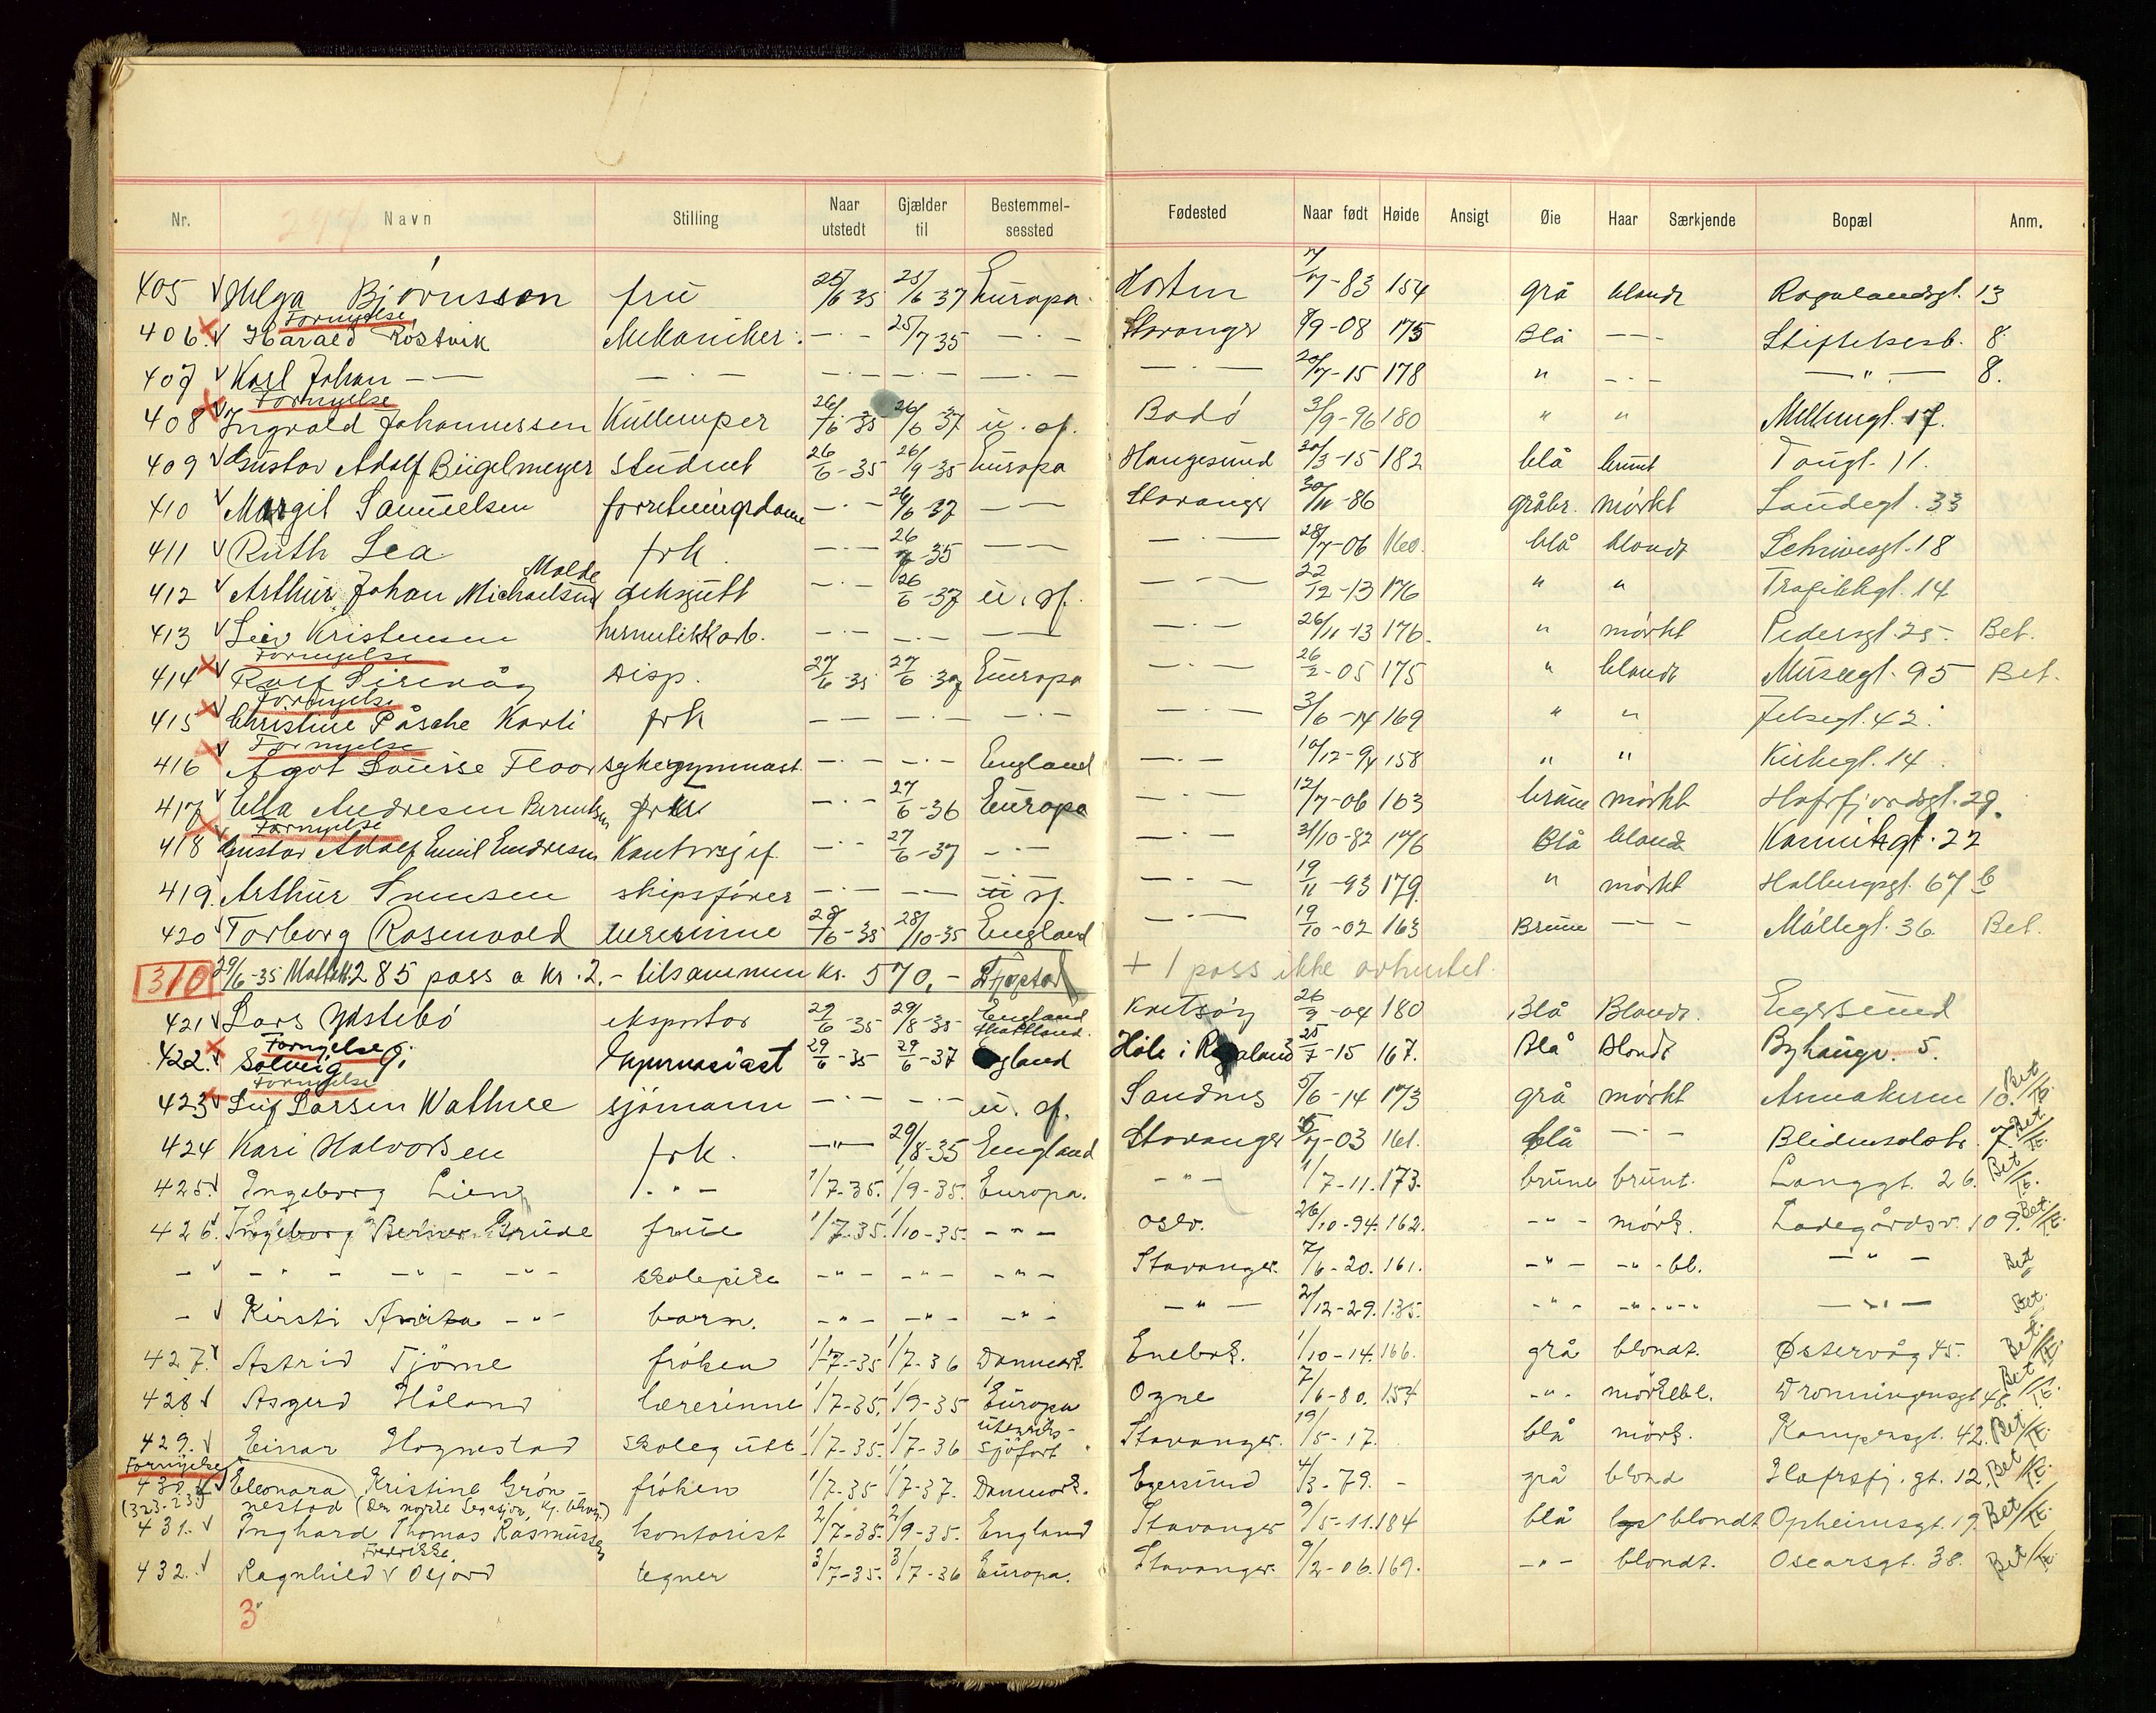 Nr. Navn Stilling Naar utstedt Gjælder til Bestemmelsessted Fødested Naar født Høide Ansigt Øie Haar Særkjende Bopæl Anm.
405 √ Helga Bjørnsson fru 25/6 35 25/6 37 Europa Horten 7/7-83 154 grå blondt Rogalandsgt. 13
Fornyelse
406. √ Harald Röstvik Mekaniker — · — 25/7 35 — · — Stavanger 8/9-08 175 Blå — — Stiftelsesb. 8.
407 √ Karl Johan — — — · — — · — — · — — · — — · — 20/7-15 178 " — · — — " — 8.
Fornyelse
408 √ Ingvald Johannessen Kullemper 26/6 35 26/6 37 u. sf. Bodö 3/9-96 180 " " Möllergt. 17.
409 √ Gustav Adolf Bügelmeyer Student 26/6-35 26/9-35 Europa Haugesund 20/3-15 182 blå brunt Tougt. 11.
410 √ Margit Samuelsen forretningsdame — · — 26/6 37 — — Stavanger 30/11-86 gråbr. mörkt Sandegt. 33
411 √ Ruth Lea frk. — · — 26 -35 — — — · — 28/7-06 160. blå blondt 18
Molde
412 √ Arthur Johan Michaelsen dekksgutt — · — 26/6-37 u. sf. — · — 22/12-13 176 " " Trafikkgt. 14
413 √ Leiv Kristensen hermetikkarb. — · — — · — — — — · — 26/11-13 176. " mörkt Pedersgt. 25. Bet.
Fornyelse
414 √ Rolf Sirevåg Disp. 27/6-35 27/6-37 Europa — · — 26/2-05 175 " blondt Museegt. 95 Bet.
Fornyelse
415 √ Christine Påsche frk — — — · — — · — — · — 3/6-14 169 " " Jelsegt. 42.
Fornyelse
416 √ Agot Louise Floor sykegymnast. — · — — · — England — · — 10/12-94 158 " " Kirkegt. 14.
417 √ Ella Andresen frk — · — 27/6-36 Europa — · — 12/7-06 163 brune mörkt Hafrfjordsgt. 29.
Fornyelse
418 √ Gustav Adolf Emil Endresen Kontorsjef. — · — 27/6-37 — · — — · — 31/10-82 176 Blå blondt 22
419. Arthur skipsförer — · — — · — u sf. — · — 19/11-93 179. " mörkt Holbergsgt. 67 b
420 √ Torborg Rosenvold lærerinne 28/6-35 28/10-35 England — · — 19/10-02 163 Brune — — Möllegt. 36. Bet.
310 29/6-35 285 pass a kr. 2.- tilsammen kr. 570,- + 1 pass ikke avhentet.
421 √ Lars Ystebö eksportör 29/6-35 29/8-35 England Skottland. Kvitsöy 26/9-04 180 Blå Blondt. Egersund
Fornyelse
422. √ Solveig G. gymnasiast 29/6-35 29/6-37 England Höle i Rogaland 25/7-15 167. Blå Blondt Byhaugv. 5.
Fornyelse
423 √ Leif Larsen Wathne sjömann — · — — · — u. sf. Sandnes 5/6-14 173 grå mörkt 10. Bet
424 Kari Halvorsen frk. — " — 29/8-35 England Stavanger 5/7-03 161. blå — · — Blidensolstr. 7. Bet.
425. √ Ingeborg Lien - " - 1/7-35. 1/9-35. Europa. - " - 1/7-11. 173. brune brunt. Langgt. 26. Bet
426. √ Ingeborg Berner Grude frue 1/7-35. 1/10-35. - " - Oslo. 26/10-94. 162. - " - mörk. Ladegårdsv. 109. Bet.
- √ - " - - " - - " - skolepike - " - - " - - " - Stavanger. 7/6-20. 161. - " - - " - bl. - " - Bet
- √ Kirsti Anita - " - barn. - " - - " - - " - - " - 2/12-29. 135. - " - - " - - " - Bet.
427. √ Astrid Tjörne fröken 1/7-35 1/7-36 Danmark. Enebak. 1/10-14. 166. grå blondt. Østervåg 45. Bet.
428. √ Asgerd Håland lærerinne 1/7-35. 1/9-35 Europa Ogne 7/6-80. 157 - " - mörkebl. Dronningensgt. 48. Bet
429. √ Einar Hognestad skolegutt 1/7-35. 1/7-36 utenriks- sjöfart Stavanger. 19/5-17. blå mörk. Kampensgt. 42. Bet.
Fornyelse
430. √ Eleonora Kristine Grön- fröken 1/7-35 1/7-37. Danmark. Egersund 4/3-79. - grå blond Hafrsfj. gt. 12. Bet
(323-235) nestad (Den norske Legasjon, Kj. )
431. √ Inghard Thomas Rasmussen kontorist 2/7-35. 2/9-35. England Stavanger 9/5-11. 184 blå blondt Opheimsgt. 19. Bet
Fredrikke
432. √ Ragnhild √ Osjord tegner 3/7-35. 3/7-36 Europa. Stavanger. 9/2-06. 169. - " - blondt. Oscarsgt. 38. Bet
3